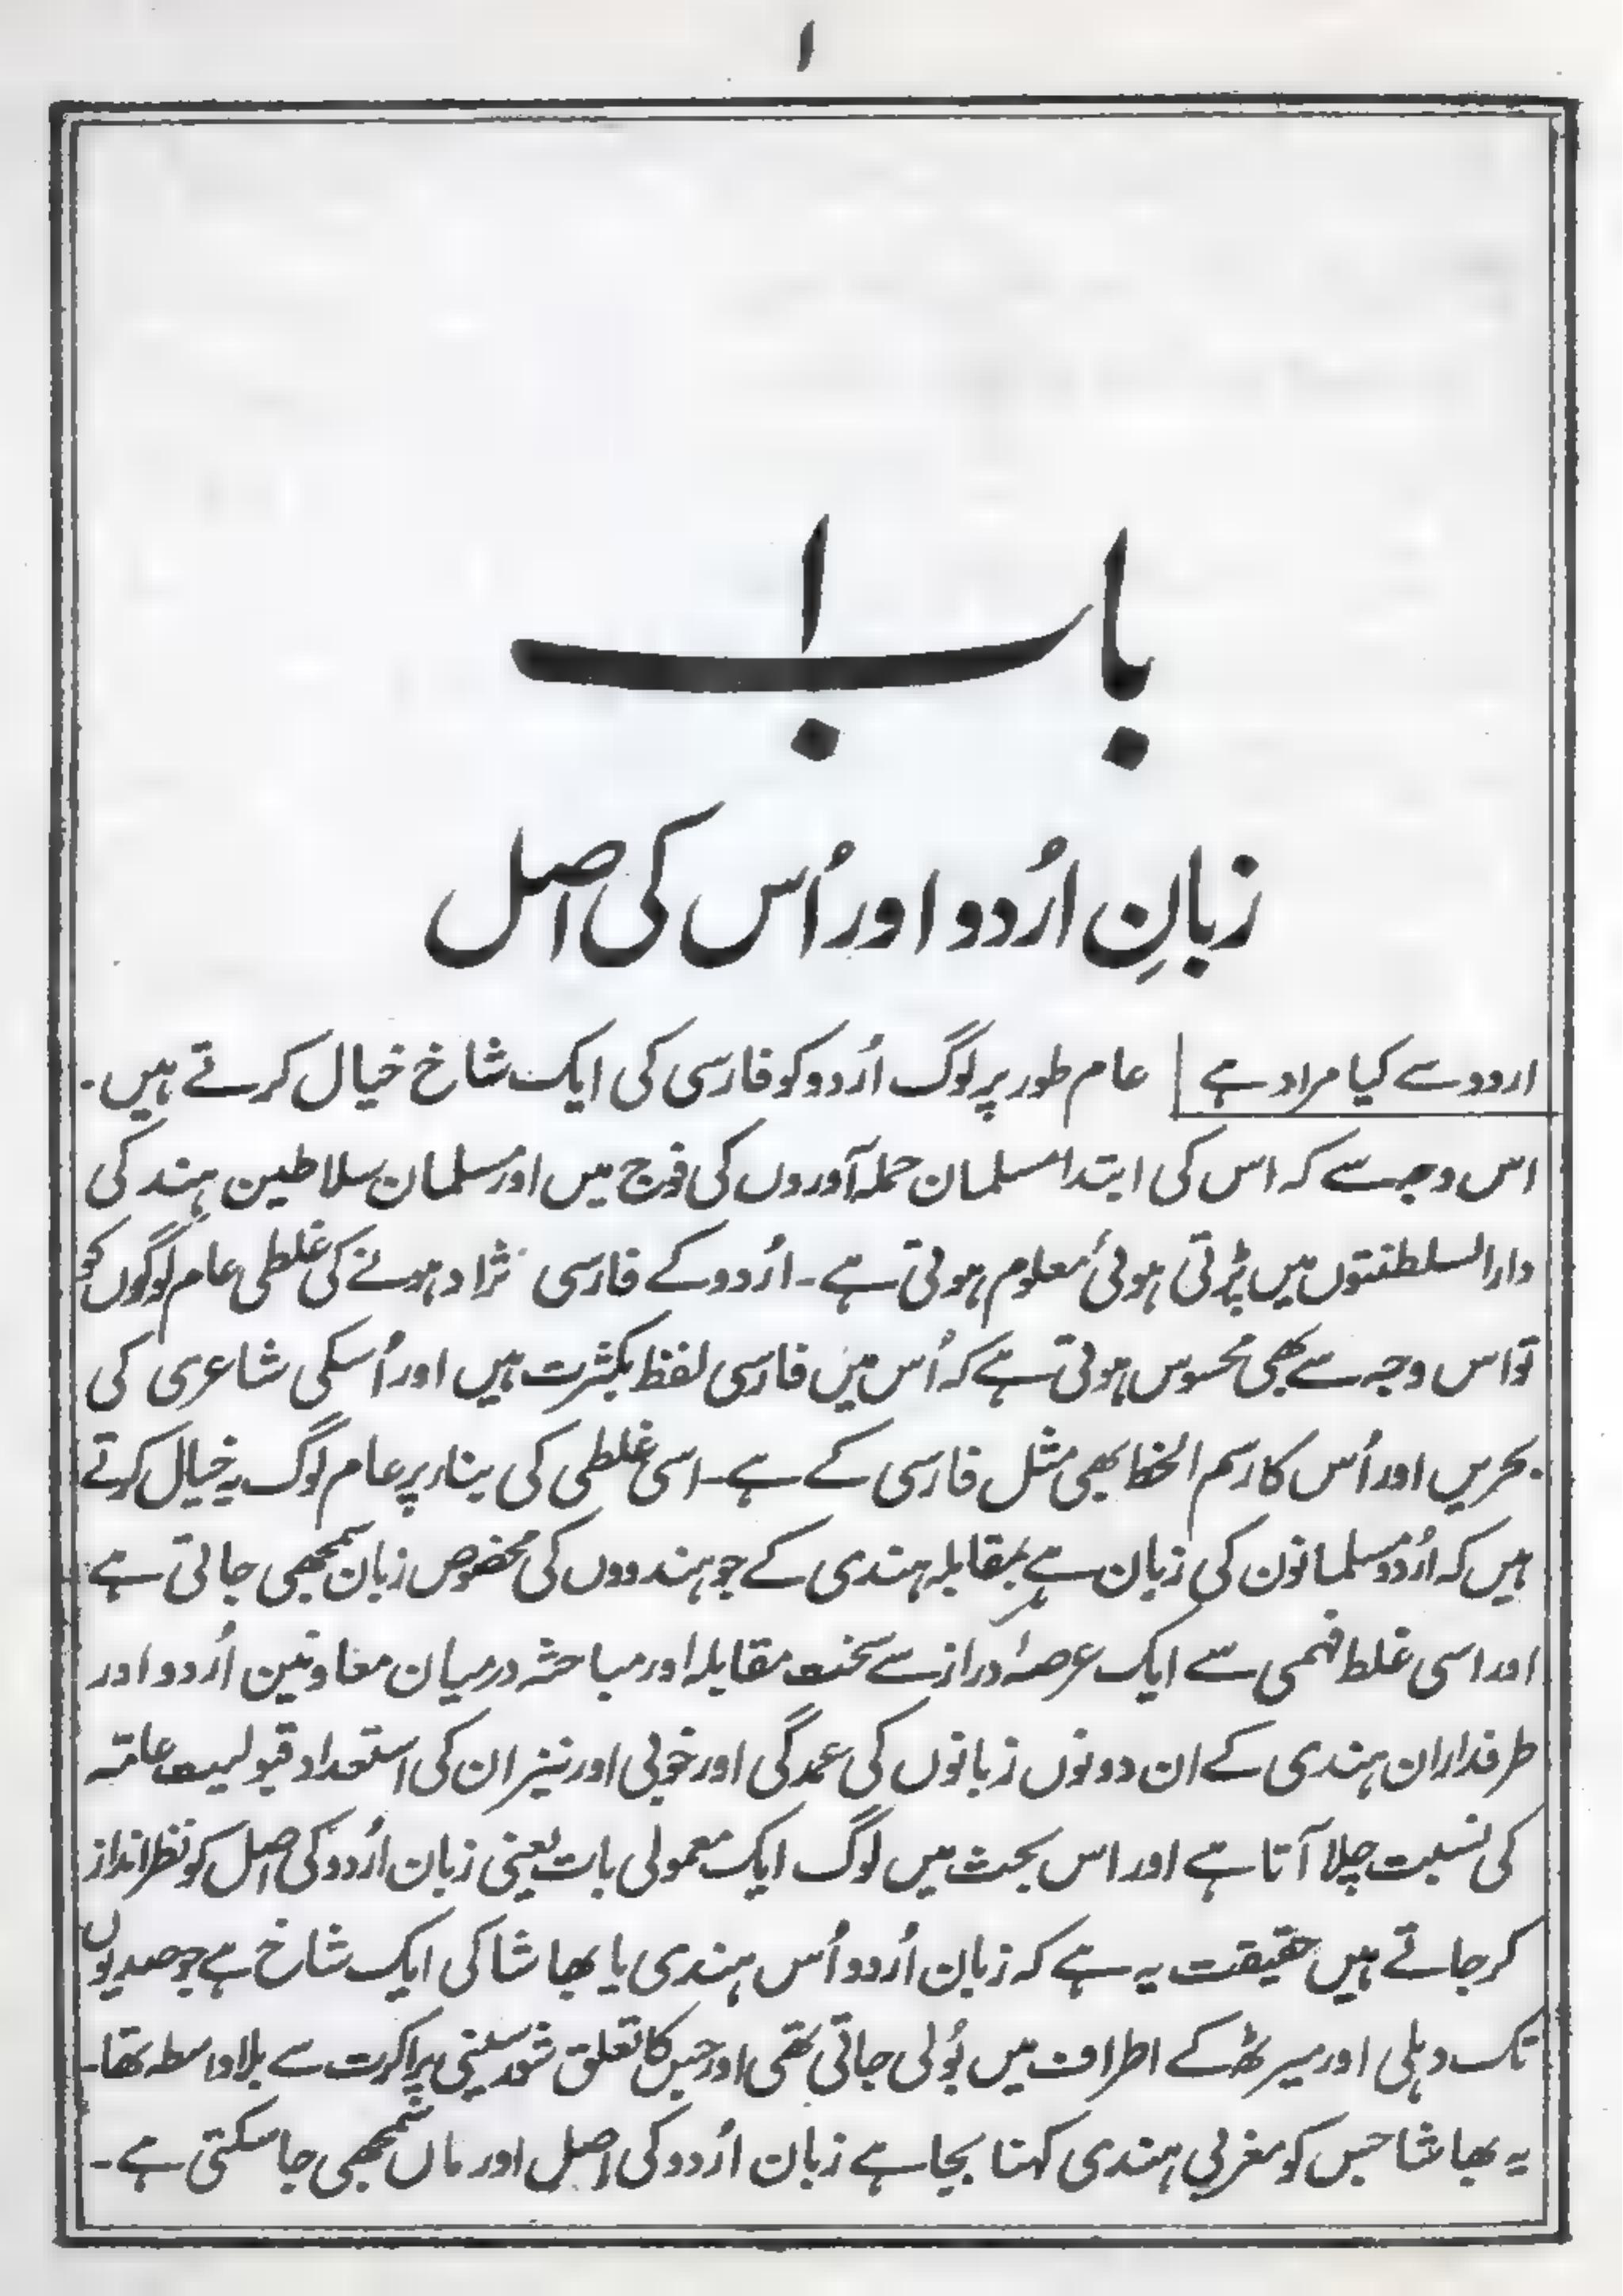 ۱
باب ۱
زبانِ اُردو اور اُس کی اصل
اردو سے کیا مراد ہے عام طور پر لوگ اُردو کو فارسی کی ایک شاخ خیال کرتے ہیں۔
اس وجہ سے کہ اس کی ابتدا مسلمان حملہ آوروں کی فوج میں اور مسلمان سلاطین ہند کی
دارالسلطنتوں میں پڑتی ہوئی معلوم ہوتی ہے۔ اُردو کے فارسی نژاد ہونے کی غلطی عام لوگوں کو
تو اس وجہ سے بھی محسوس ہوتی ہے کہ اُس میں فارسی لفظ بکثرت ہیں اور اُسکی شاعری کی
بحریں اور اُس کا رسم الخط بھی مثل فارسی کے ہے۔ اسی غلطی کی بناء پر عام لوگ یہ خیال کرتے
ہیں کہ اُردو مسلمانون کی زبان ہے بمقابلہ ہندی کے جو ہندووں کی مخصوص زبان سمجھی جاتی ہے
اور اسی غلط فہمی سے ایک عرصۂ دراز سے سخت مقابلہ اور مباحثہ درمیان معاونین اُردو اور
طرفداران ہندی کے ان دونوں زبانوں کی عمدگی اور خوبی اور نیز ان کی استعداد قبولیت عامّہ
کی نسبت چلا آتا ہے اور اس بحث میں لوگ ایک معمولی بات یعنی زبان اُردو کی اصل کو نظر انداز
کر جاتے ہیں حقیقت یہ ہے کہ زبان اُردو اُس ہندی یا بھاشا کی ایک شاخ ہے جو صدیوں
تک دہلی اور میرٹھ کے اطراف میں بولی جاتی تھی اور جس کا تعلق شورسینی پراکرت سے بلاواسطہ تھا۔
یہ بھاشا جس کو مغربی ہندی کہنا بجا ہے زبان اُردو کی اصل اور ماں سمجھی جا سکتی ہے۔